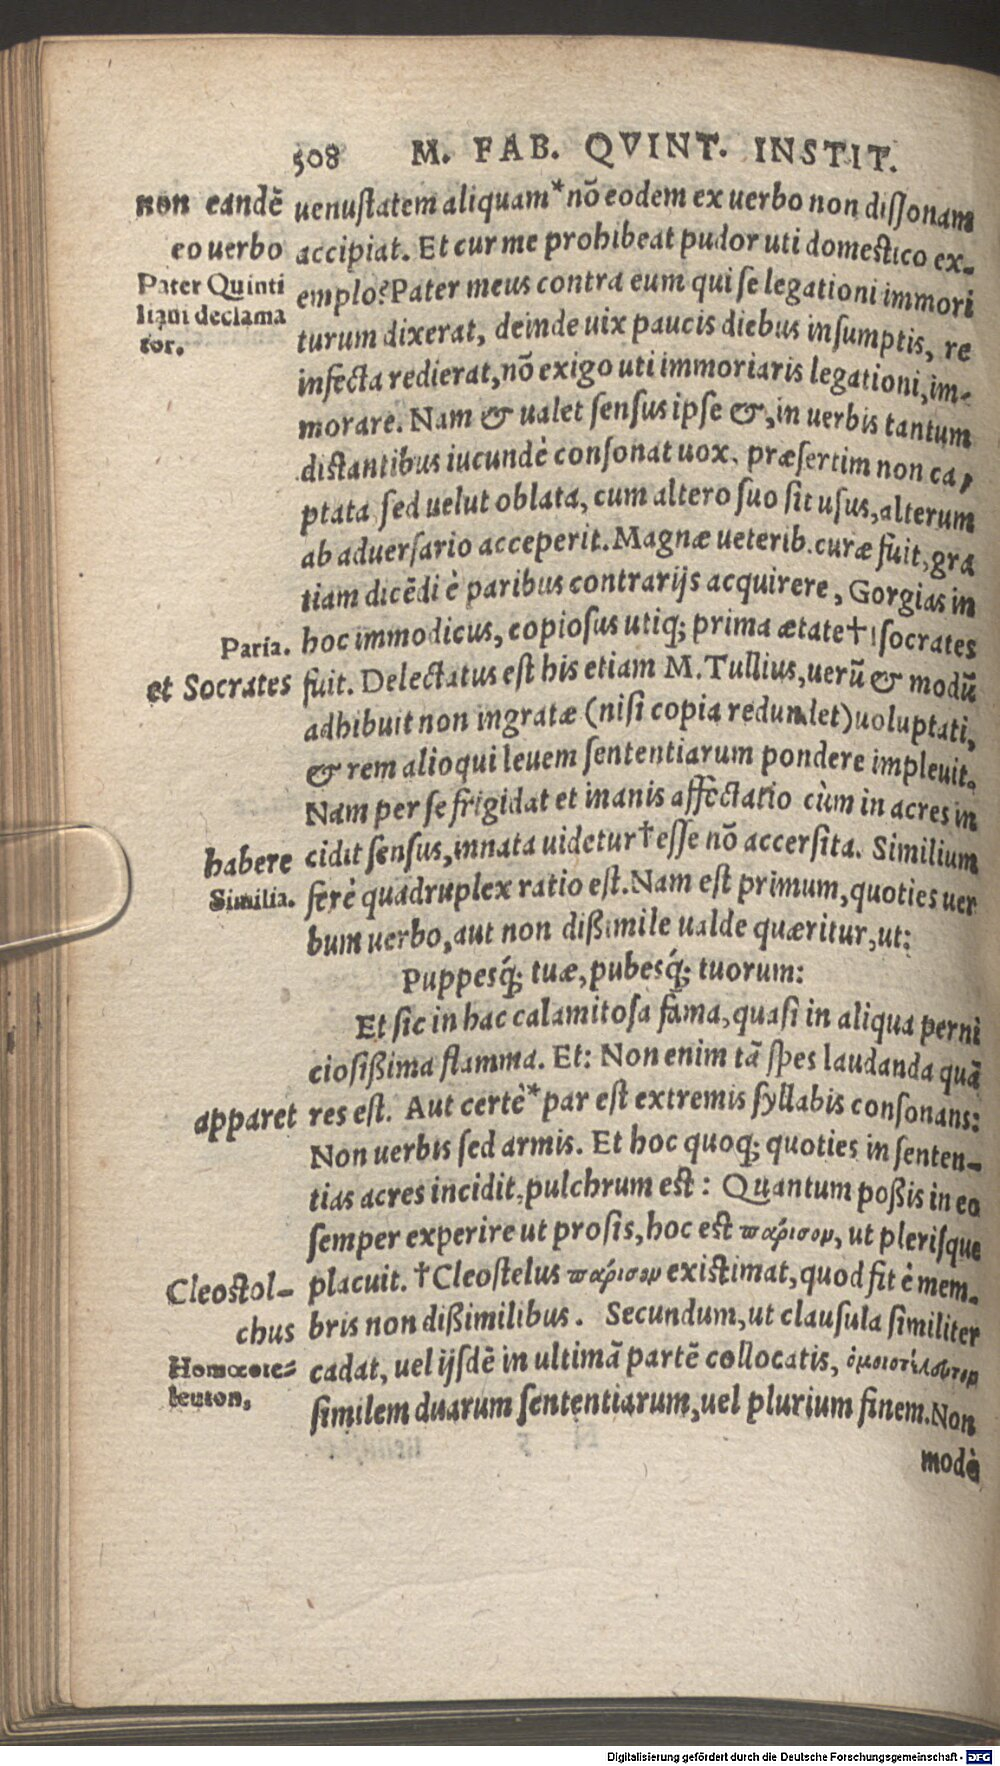 508 M. FAB. QVINT. INSTIT.
non eandē
eo uerbo
Pater Quinti
liani declama
tor.
uenuſtatem aliquam* nō eodem ex uerbo non diſſonam
accipiat. Et cur me prohibeat pudor uti domeſtico ex-
emplo? Pater meus contra eum qui ſe legationi immori
turum dixerat, deinde uix paucis diebus inſumptis, re
infecta redierat, nō exigo uti immoriaris legationi, im-
morare. Nam & ualet ſenſus ipſe &, in uerbis tantum
diſtantibus iucundè conſonat uox, præſertim non ca,
ptata ſed uelut oblata, cum altero ſuo ſit uſus, alterum
ab aduerſario acceperit. Magnæ ueterib. curæ fuit, gra
tiam dicēdi è paribus contrarijs acquirere, Gorgias in
Paria.
hoc immodicus, copioſus utiq; prima ætate† Iſocrates
et Socrates
fuit. Delectatus eſt his etiam M. Tullius, uerū & modū
adhibuit non ingratæ (niſi copia redundet) uoluptati,
& rem alioqui leuem ſententiarum pondere impleuit.
Nam per ſe frigidat et inanis affectatio cùm in acres in
habere
cidit ſenſus, innata uidetur† eſſe nō accerſita. Similium
Similia.
ferè quadruplex ratio eſt. Nam eſt primum, quoties uer
bum uerbo, aut non dißimile ualde quæritur, ut:
Puppesq́; tuæ, pubesq́; tuorum:
Et ſic in hac calamitoſa fama, quaſi in aliqua perni
cioſißima flamma. Et: Non enim tā ſpes laudanda quā
apparet
res eſt. Aut certè* par eſt extremis ſyllabis conſonans:
Non uerbis ſed armis. Et hoc quoq; quoties in ſenten-
tias acres incidit, pulchrum eſt: Quantum poßis in eo
ſemper experire ut proſis, hoc eſt πάρισον, ut pleriſque
Cleostol-
chus
placuit. †Cleoſtelus πάρισον exiſtimat, quod fit è mem-
bris non dißimilibus. Secundum, ut clauſula ſimiliter
Homœote-
leuton,
cadat, uel ijſdē in ultimā partē collocatis, ὁμοιοτέλευτον
ſimilem duarum ſententiarum, uel plurium finem. Non
modò
Digitalisierung gefördert durch die Deutsche Forschungsgemeinschaft - DFG